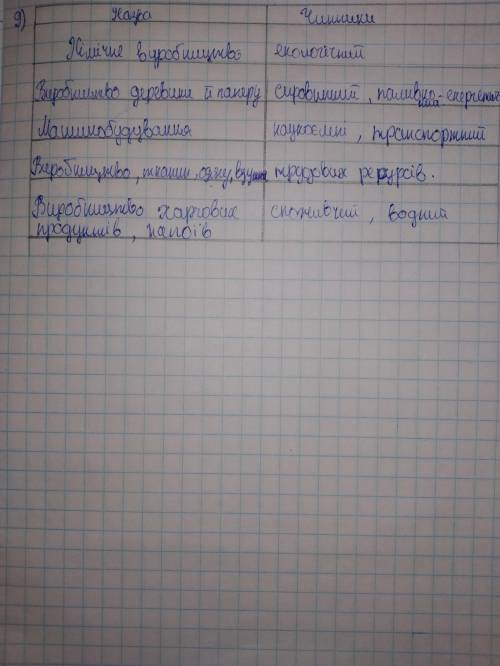 9) Назва Чинники
Хімічне виробництво екологічний
Виробництво деревини й паперу сировинний, паливно-енергетич
ний
Машинобудування наукоємні, транспортний
Виробництво, тканин, одягу, взуття трудових ресурсів.
Виробництво харчових споживчий, водний
продуктів, напоїв